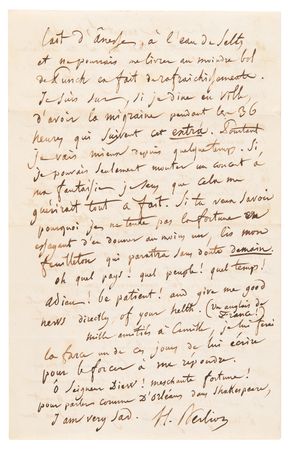 lait d'ânesse, à l'eau de Seltz
et ne pouvais me livrer au moindre bol
de Kirsch en fait de rafraichissements.
Je suis sur, si je dine en ville,
d'avoir la migraine pendant les 36
heures qui suivent cet extra. Pourtant
je vais mieux depuis quelque temps. Si
je pouvais seulement monter un concert à
ma fantaisie je sens que cela me
guérirait tout à fait. Si tu veux savoir
pourquoi je ne tente pas la fortune en
essayant d'en donner au moins un, lis mon
feuilleton qui paraîtra sans doute demain.
Oh quel pays! quel peuple! quel temps!
adieu! be patient! and give me good
news directly of your health. (Un anglais de
France!)
mille amitiés à Camille, je lui ferai
la farce un de ces jours de lui écrire
pour le forcer à me répondre.
O Seigneur Dieu! meschante fortune!
pour parler comme D'Orléans dans Shakespeare,
I am very sad. H. Berlioz